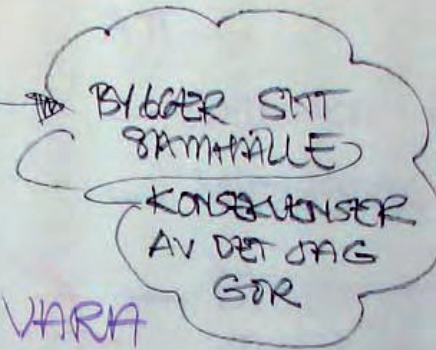 BYGGER SITT
SAMHÄLLE
KONSEKVENSER
AV DET JAG
GÖR
VARA